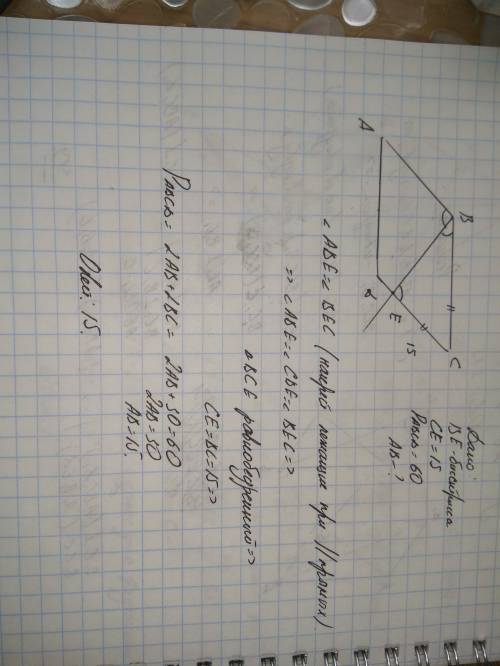 A
B
C
E
15
Дано:
BE - биссектриса
CE = 15
Pавсд = 60
AB - ?
∠ABE = ∠BEC (накрест лежащие при || прямых)
=> ∠ABE = ∠CBE = ∠BEC =>
△BCE равнобедренный =>
CE = BC = 15 =>
Pавсд = 2AB + 2BC = 2AB + 30 = 60
2AB = 30
AB = 15.
Ответ: 15.